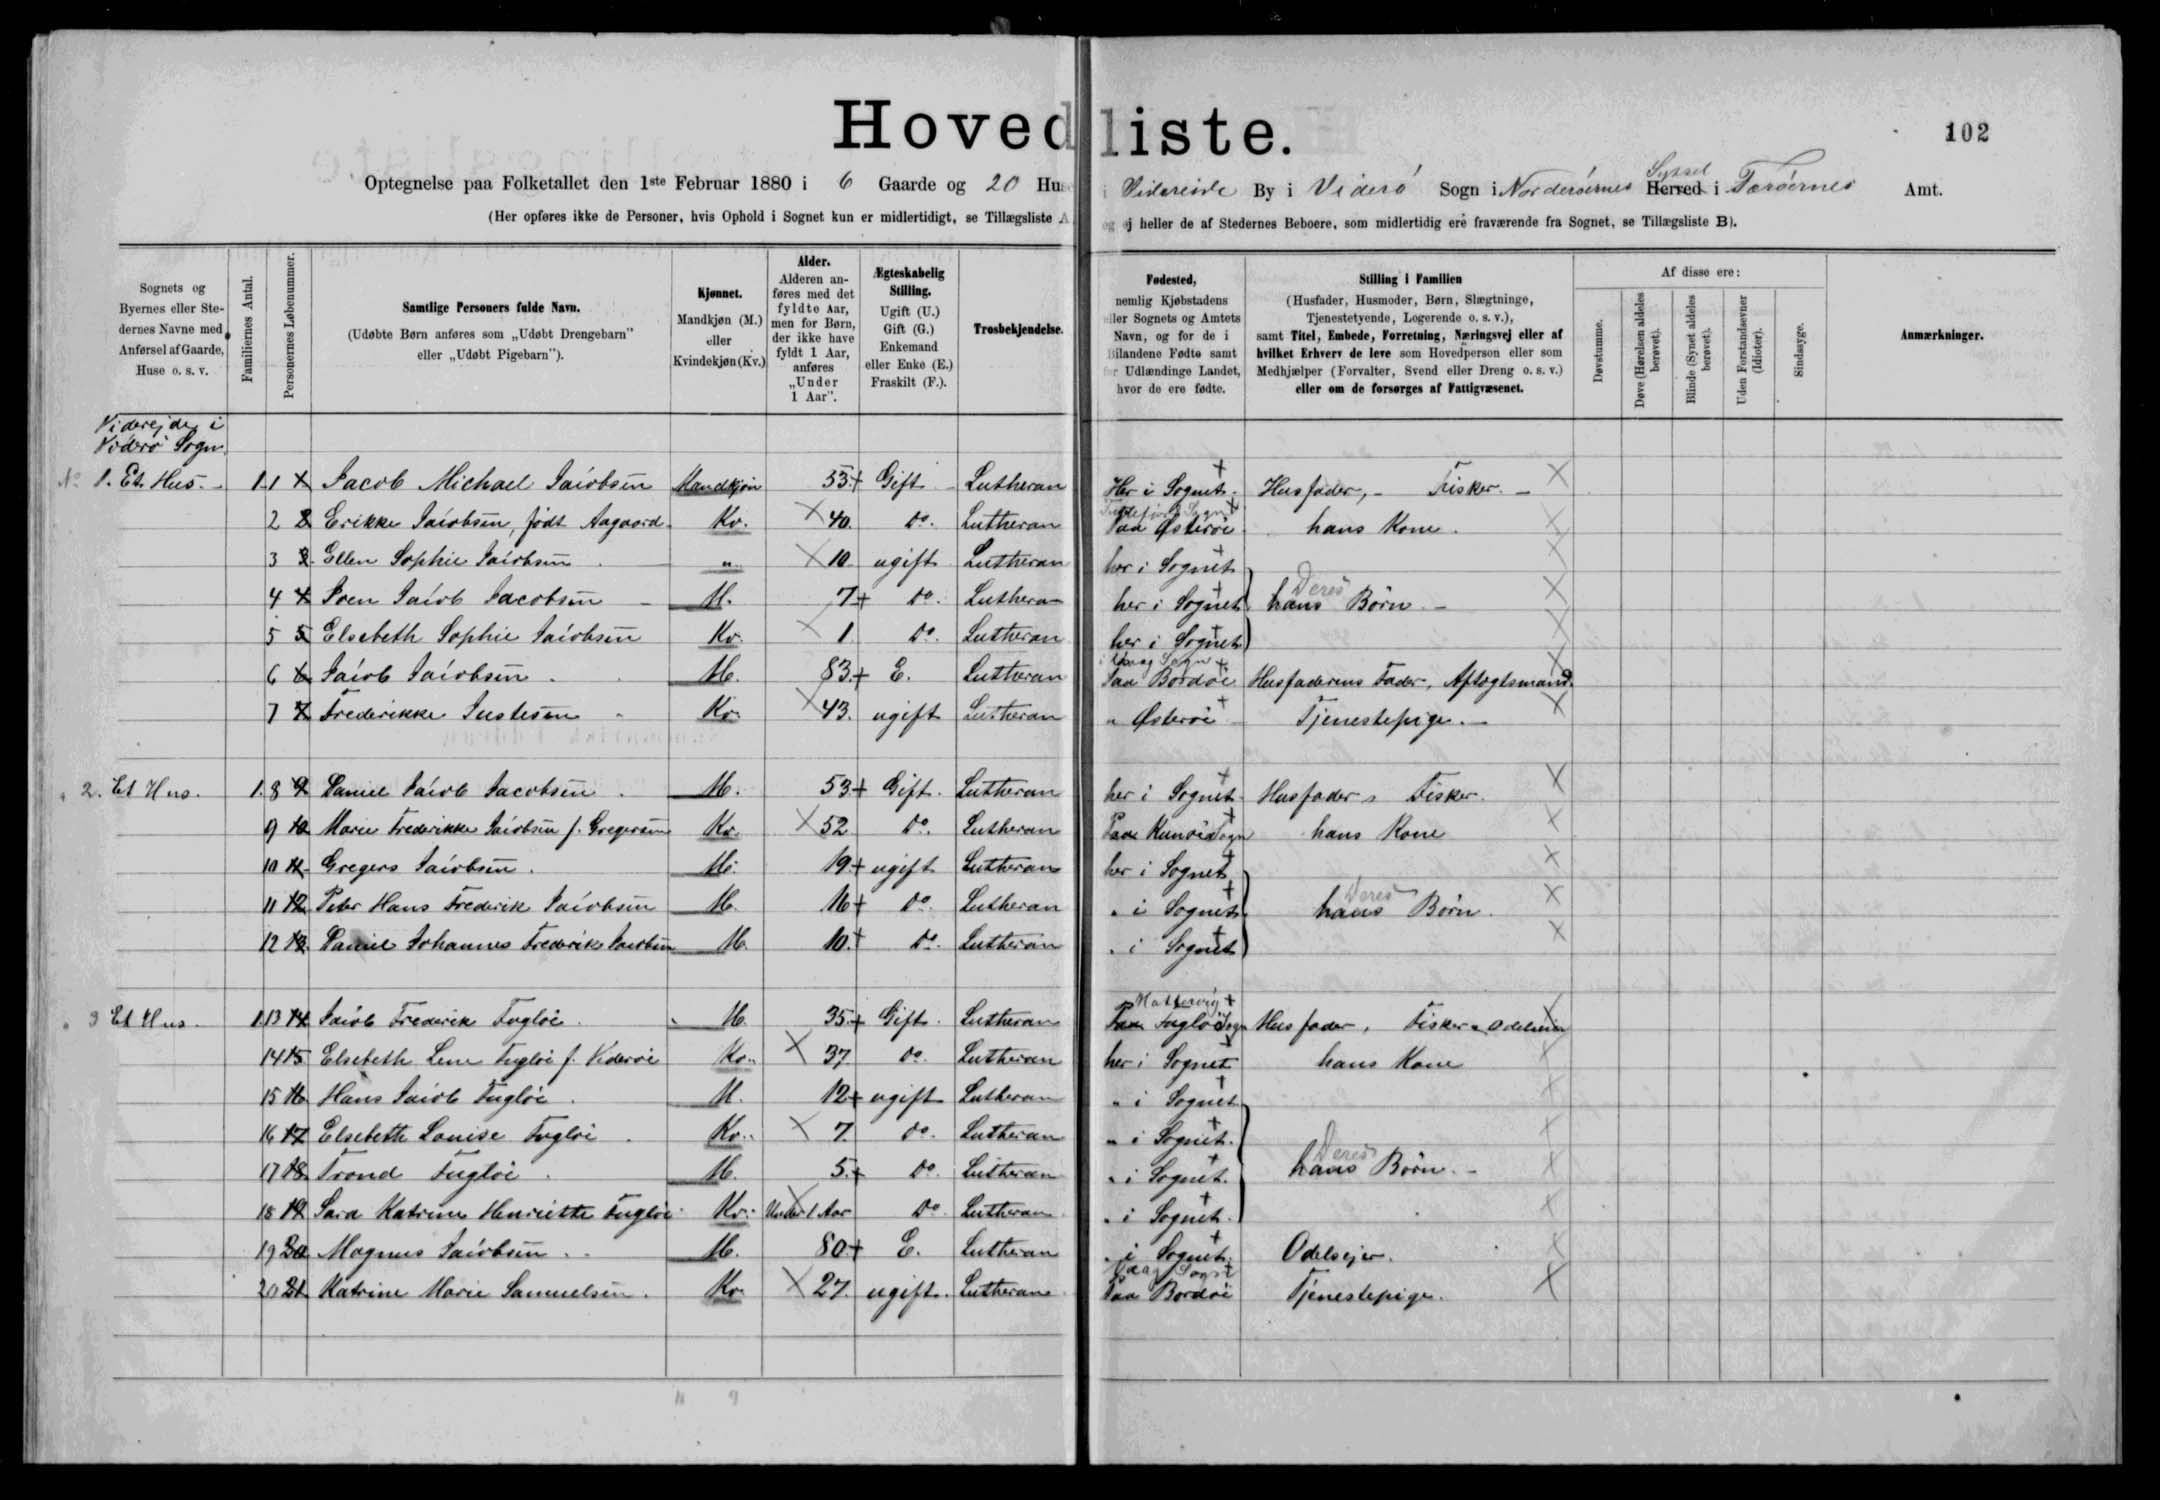 Hovedliste.
102
Optegnelse paa Folketallet den 1ste Februar 1880 i 6 Gaarde og 20 Hus i Videreide By i Viderö Sogn i Norderöernes Syssel Herred i Færöernes Amt.
(Her opføres ikke de Personer, hvis Ophold i Sognet kun er midlertidigt, se Tillægsliste A og ej heller de af Stedernes Beboere, som midlertidig ere fraværende fra Sognet, se Tillægsliste B).
Sognets og Byernes eller Stedernes Navne med Anførsel af Gaarde, Huse o. s. v.
Familiernes Antal.
Personernes Løbenummer.
Samtlige Personers fulde Navn.
(Udøbte Børn anføres som „Udøbt Drengebarn" eller „Udøbt Pigebarn").
Kjønnet.
Mandkjøn (M.) eller Kvindekjøn (Kv.)
Alder.
Alderen anføres med det fyldte Aar, men for Børn, der ikke have fyldt 1 Aar, anføres „Under 1 Aar".
Ægteskabelig Stilling.
Ugift (U.) Gift (G.) Enkemand eller Enke (E.) Fraskilt (F.).
Trosbekjendelse.
Fødested,
nemlig Kjøbstadens eller Sognets og Amtets Navn, og for de i Bilandene Fødte samt for Udlændinge Landet, hvor de ere fødte.
Stilling i Familien
(Husfader, Husmoder, Børn, Slægtninge, Tjenestetyende, Logerende o. s. v.),
samt Titel, Embede, Forretning, Næringsvej eller af hvilket Erhverv de leve som Hovedperson eller som Medhjælper (Forvalter, Svend eller Dreng o. s. v.)
eller om de forsørges af Fattigvæsenet.
Af disse ere:
Døvstumme.
Døve (Hørelsen aldeles berøvet).
Blinde (Synet aldeles berøvet).
Uden Forstandsevner (Idioter).
Sindssyge.
Anmærkninger.
Viderejde i
Viderö Sogn
No 1. Et Hus. 1 1 Jacob Michael Jacobsen Mandkjøn 53 Gift Lutheran Her i Sognet. Husfader, Fisker.
2 2 Erikke Jacobsen, født Aagaard Kv. 40 Do. Lutheran Paa Østerøi hans Kone.
3 3 Ellen Sophie Jacobsen " 10 ugift Lutheran her i Sognet
4 4 Joen Jacob Jacobsen M. 7 Do. Lutheran her i Sognet Deres hans Børn
5 5 Elsebeth Sophie Jacobsen Kv. 1 Do. Lutheran her i Sognet
6 6 Jacob Jacobsen M. 83 E. Lutheran Paa Bordøi Husfaderens Fader, Aftægtsmand.
7 7 Frederikke Justesen Kv. 43. ugift Lutheran " Østerøi Tjenestepige.
" 2. Et Hus. 1. 8 9 Daniel Jacob Jacobsen M. 53 Gift. Lutheran her i Sognet Husfader, Fisker.
9 10 Marie Frederikke Jacobsen f. Gregersen Kv. 52 Do. Lutheran Paa Kunøi Sogn hans Kone
10 11 Gregers Jacobsen. M. 19 ugift Lutheran her i Sognet
11 12 Peter Hans Frederik Jacobsen M. 16 Do. Lutheran " i Sognet Deres hans Børn.
12 13 Daniel Johannes Frederik Jacobsen M. 10. Do. Lutheran " i Sognet
" 3 Et Hus. 1. 13 14 Jacob Frederik Fugløi. M. 35 Gift. Lutheran Hattervig Paa Fugløi Sogn Husfader, Fisker
14 15 Elsebeth Lene Fugløi f. Viderøi Kv. 37 Do. Lutheran her i Sognet hans Kone
15 16 Hans Jacob Fugløi. M. 12 ugift Lutheran " i Sognet
16 17 Elsebeth Louise Fugløi Kv. 7. Do. Lutheran " i Sognet.
17 18 Trond Fugløi. M. 5. Do. Lutheran " i Sognet. Deres hans Børn.
18 19 Sara Katrine Henriette Fugløi Kv. Under 1 Aar Do. Lutheran " i Sognet.
19 20 Magnus Jacobsen. M. 80 E. Lutheran " i Sognet. Odelsejer.
20 21 Katrine Marie Samuelsen. Kv. 27. ugift. Lutheran Vaag Sogn Paa Bordøi Tjenestepige.